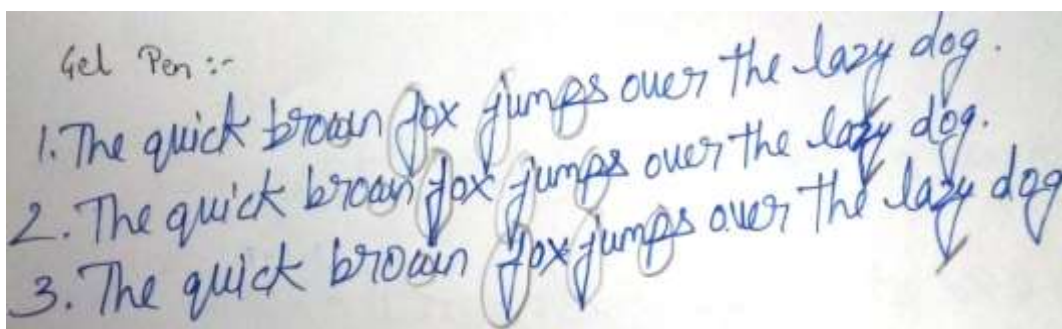 Gel Pen :-
1. The quick brown fox jumps over the lazy dog.
2. The quick brown fox jumps over the lazy dog.
3. The quick brown fox jumps over the lazy dog